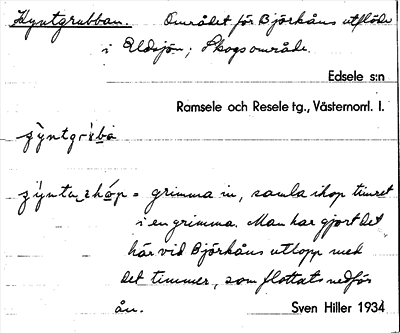 Kyntgrubban. Området för Björkåns utflöde
i Eldsjön; Skogsområde.
Edsele s:n
Ramsele och Resele tg., Västernorrl. l.
= grimma in, samla ihop timret
i en grimma. Man har gjort det
här vid Björkåns utlopp med
det timmer, som flottats nedför
ån. Sven Hiller 1934